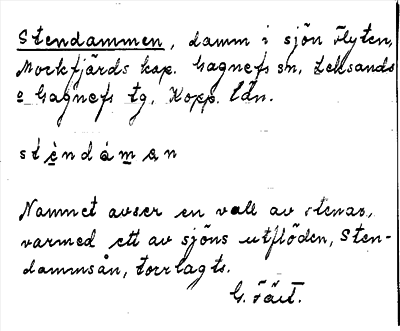 Stendammen, damm i sjön Flyten,
Mockfjärds kap. Gagnefs sn, Leksands
o Gagnefs tg, Kopp. län.
stèndámən
Namnet avser en vall av stenar,
varmed ett av sjöns utflöden, Sten-
dammsån, torrlagts.
G.